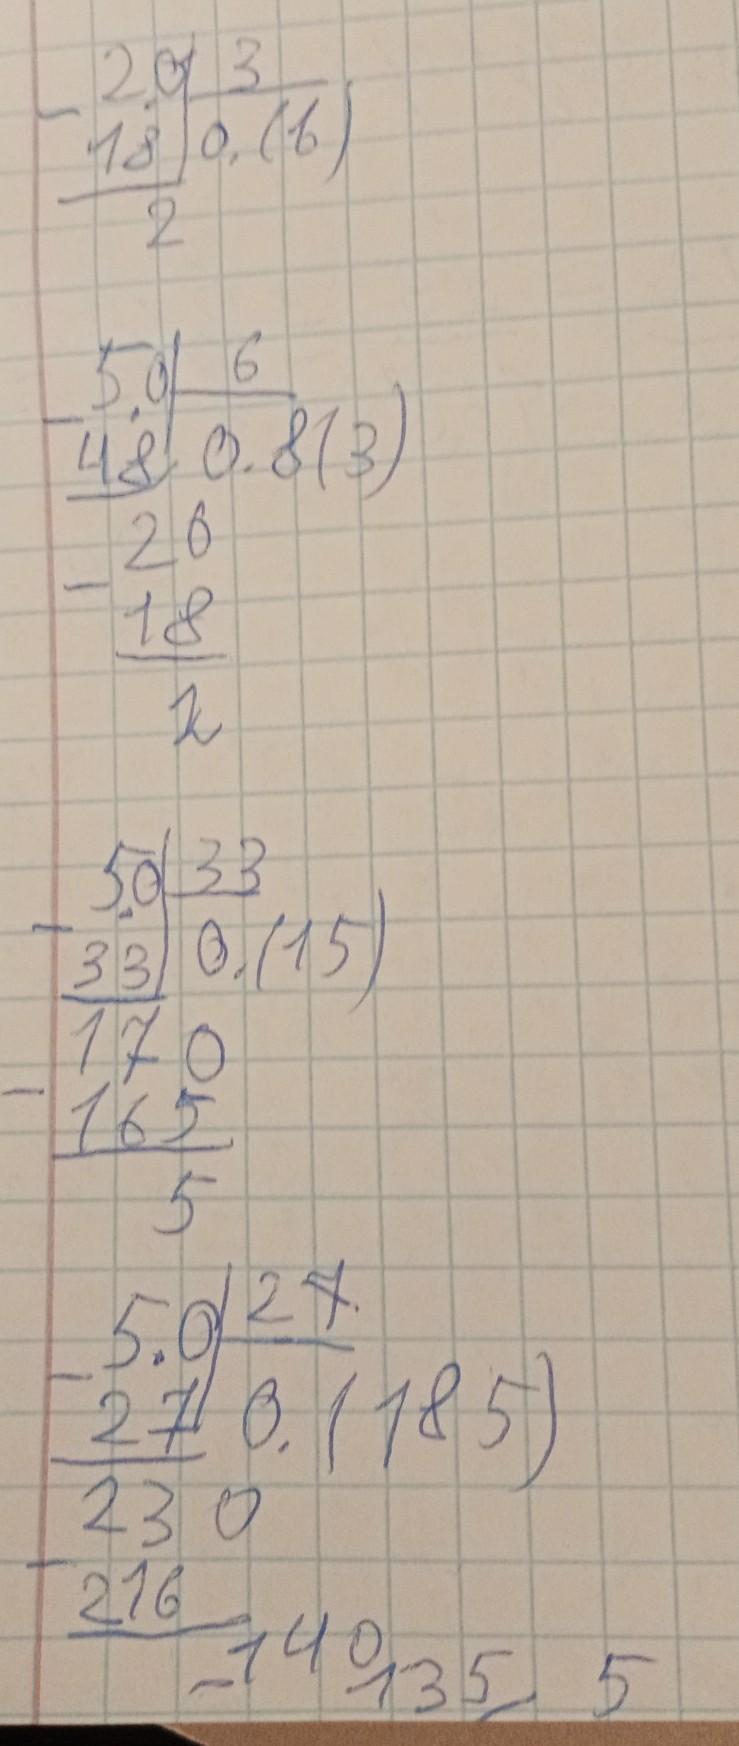 2.0 3
- 18 0.(6)
2
5.0 6
- 48 0.8(3)
20
- 18
2
5.0 33
- 33 0.(15)
170
- 165
5
5.0 27
- 27 0.(185)
230
- 216
140
- 135 5